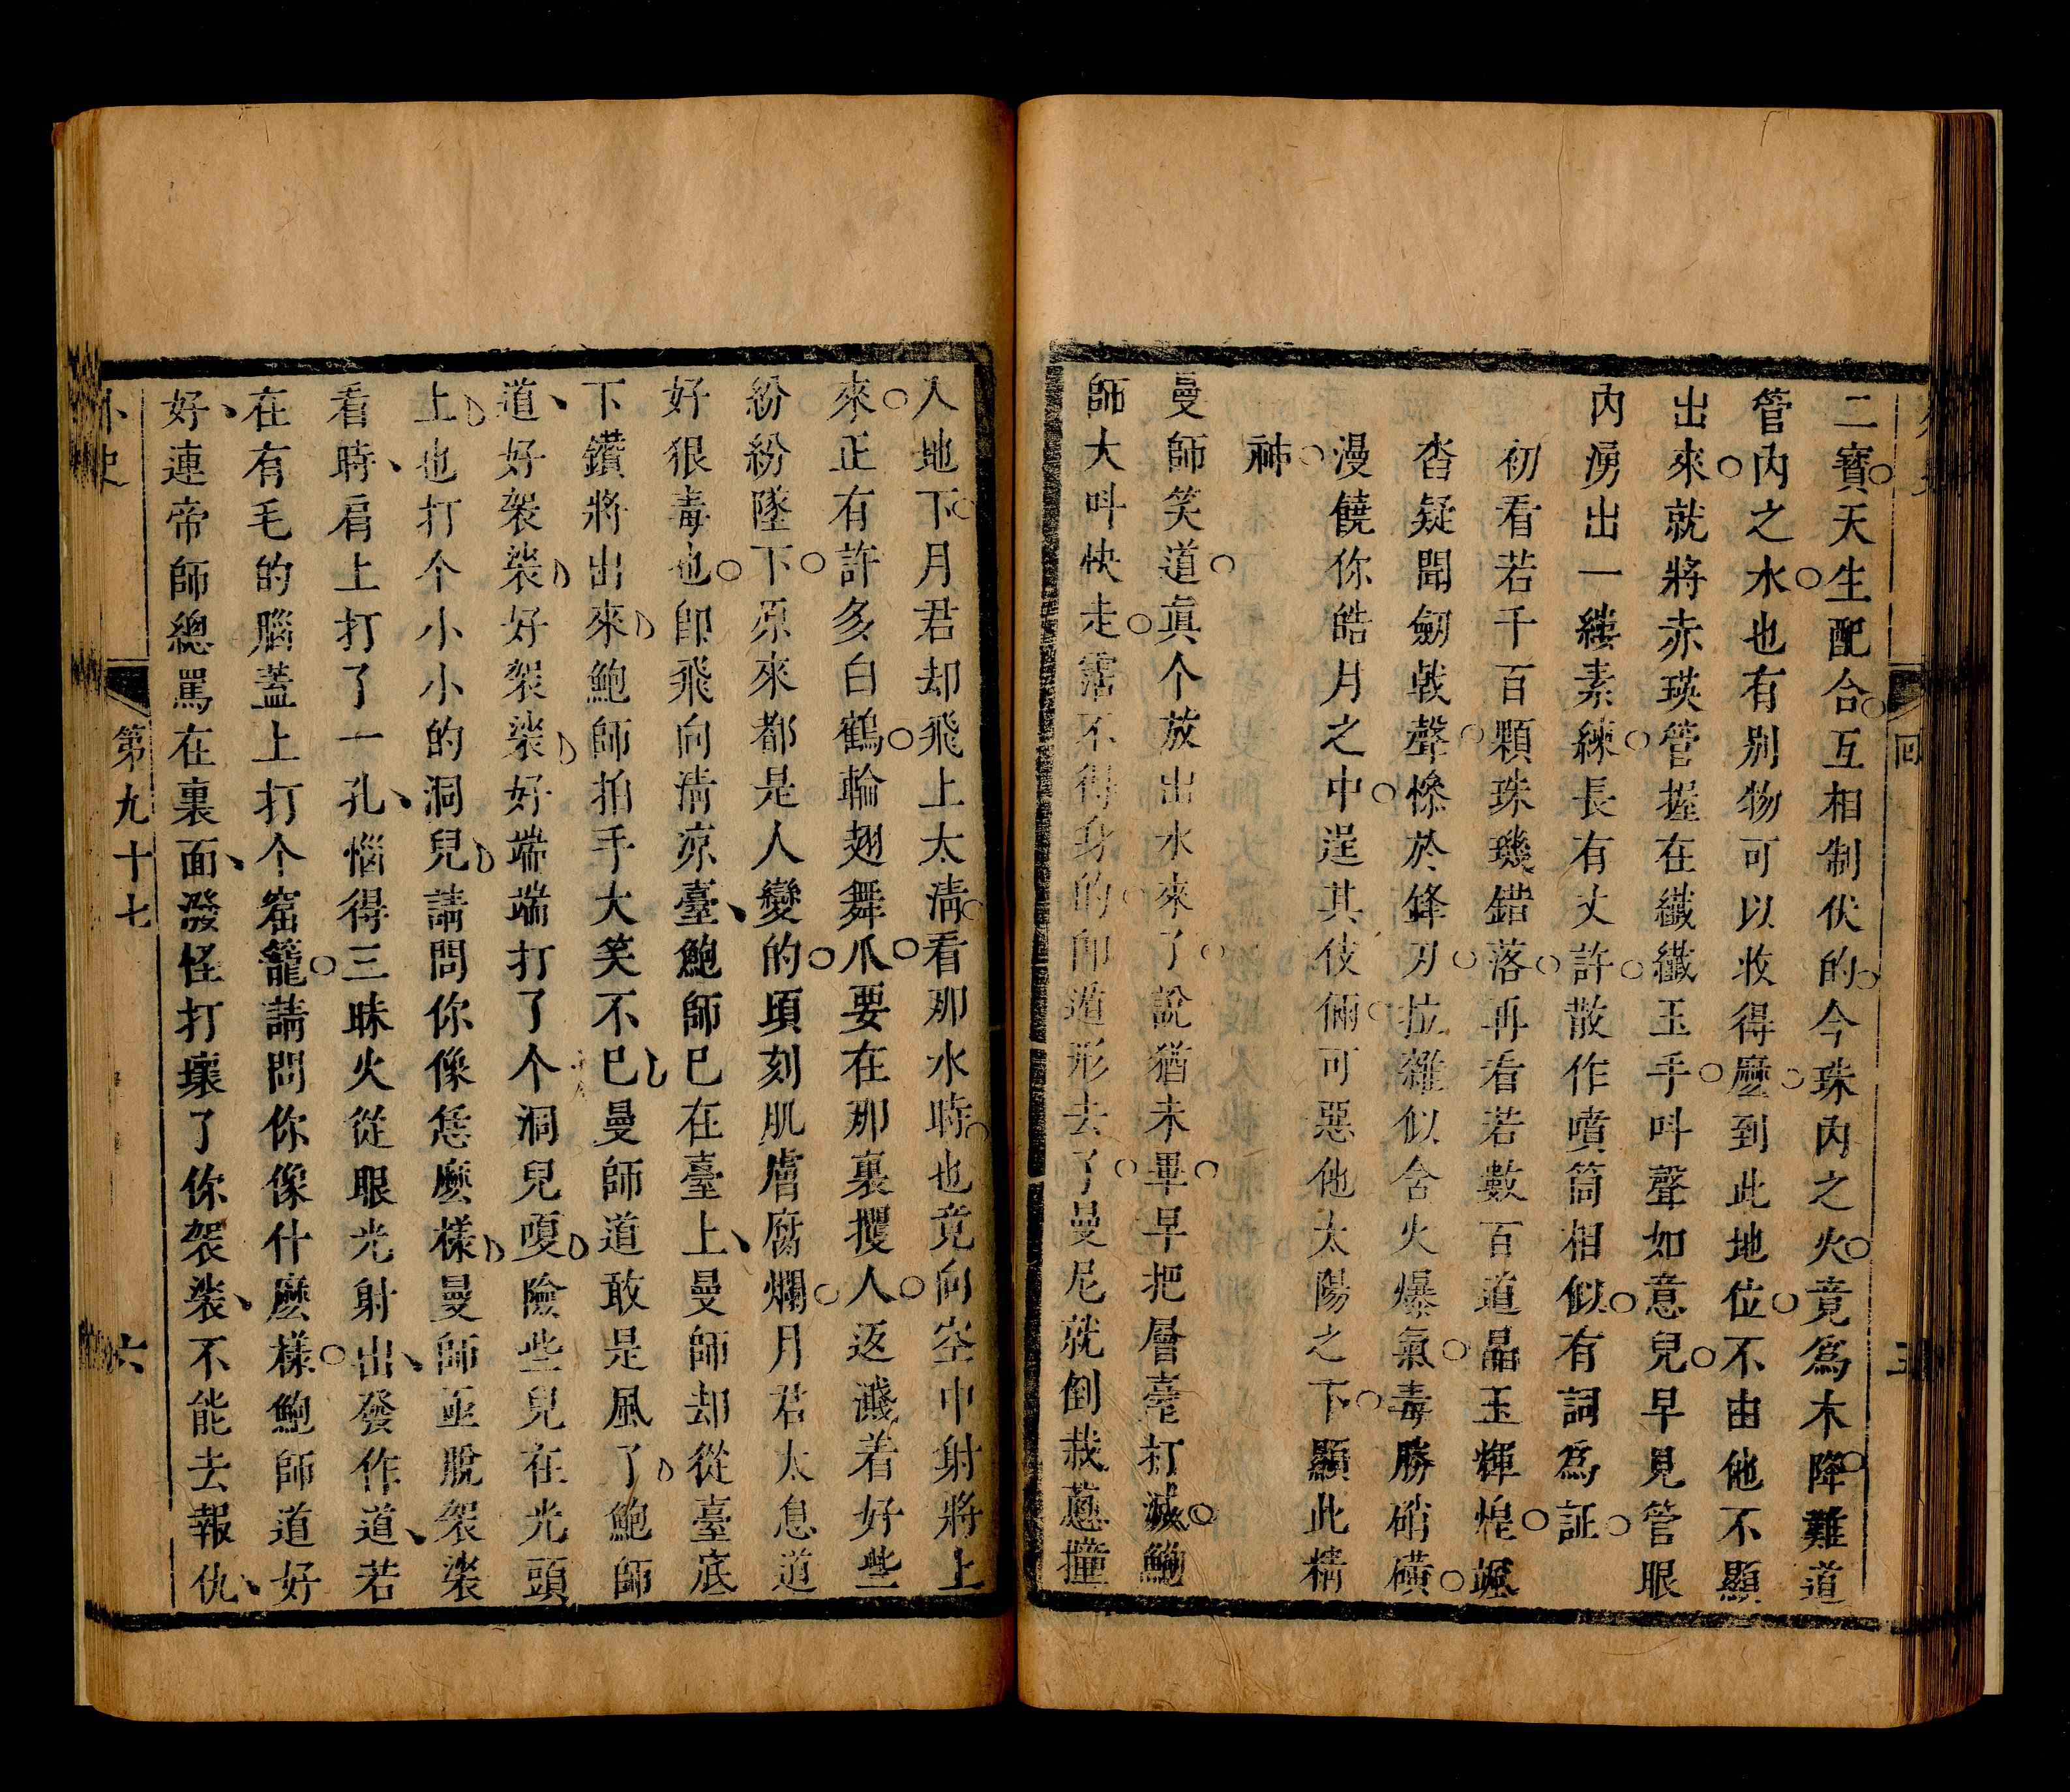 二寶天生配合互相制伏的今珠內之火竟爲木降難道
管內之水也有別物可以收得麽到此地位不由他不顯
出來就將赤瑛管握在纖纖玉手呌聲如意兒早見管眼
內湧出一縷素練長有丈許散作噴筒相似有詞爲証
初看若千百顆珠璣錯落再看若數百道晶玉輝煌颯
沓疑聞劒戟聲慘於鋒刃拉雜似含火爆氣毒勝硝磺
漫饒你皓月之中逞其伎倆可惡他太陽之下顯此精
神
曼師笑道眞个放出水來了說猶未畢早把層臺打滅鮑
師大呌快走霑不得身的卽遁形去了曼尼就倒栽蔥撞
入地下月君却飛上太淸看那水時也竟向空中射將上
來正有許多白鶴輪翅舞爪要在那裏攫人返濺着好些
紛紛墜下原來都是人變的頃刻肌膚腐爛月君太息道
好狠毒也卽飛向淸凉臺鮑師已在臺上曼師却從臺底
下鑽將出來鮑師拍手大笑不已曼師道敢是風了鮑師
道好袈裟好袈裟好端端打了个洞兒嗄險些兒在光頭
上也打个小小的洞兒請問你像恁麽樣曼師亟脫袈裟
看時肩上打了一孔惱得三昧火從眼光射出發作道若
在有毛的腦蓋上打个窟籠請問你像什麽樣鮑師道好
好連帝師總罵在裏面潑怪打壞了你袈裟不能去報仇
外史
第九十七
六
回
五